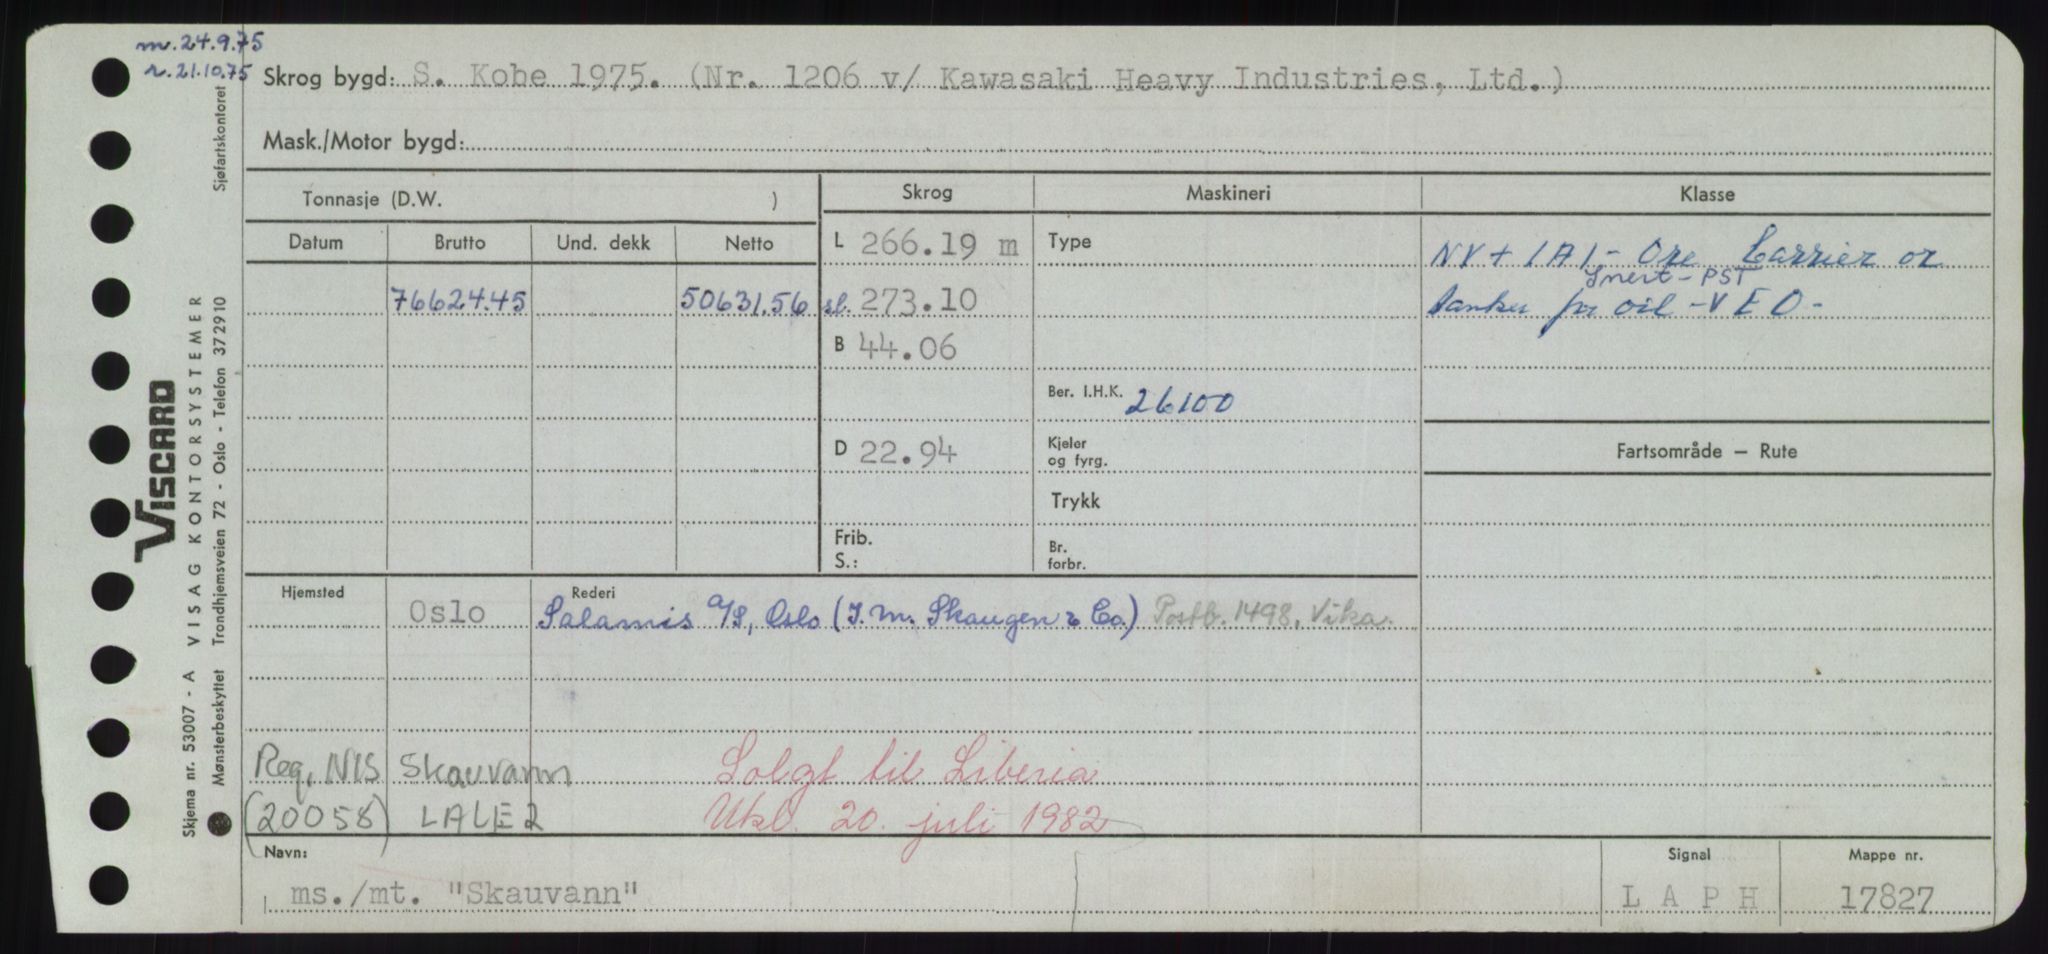 m. 24.9.75
r. 21.10.75
Skrog bygd: S. Kobe 1975. (Nr. 1206 v/ Kawasaki Heavy Industries, Ltd.)
Mask./Motor bygd:
Tonnasje (D.W. )
Skrog
Maskineri
Klasse
Datum
Brutto
Und. dekk
Netto
L 266.19 m
Type
NV + 1A1 - Ore Carrier or
Inert - PST
76624.45
50631.56
sl. 273.10
tanker for oil - VEO -
B 44.06
Ber. I.H.K. 26100
D 22.94
Kjeler
og fyrg.
Fartsområde — Rute
Trykk
Frib.
S.:
Br.
forbr.
Hjemsted
Oslo
Rederi
Salamis A/S, Oslo (I. M. Skaugen & Co.) Postb. 1498, Vika.
Reg. NIS Skauvann
Solgt til Liberia
(20058) LALE2
Utkl. 20. juli 1982
Navn:
Signal
Mappe nr.
ms./mt. "Skauvann"
L A P H
17827
VISCARD
Skjema nr. 53007 - A VISAG KONTORSYSTEMER
Mønsterbeskyttet Trondhjemsveien 72 - Oslo - Telefon 372910
Sjøfartskontoret